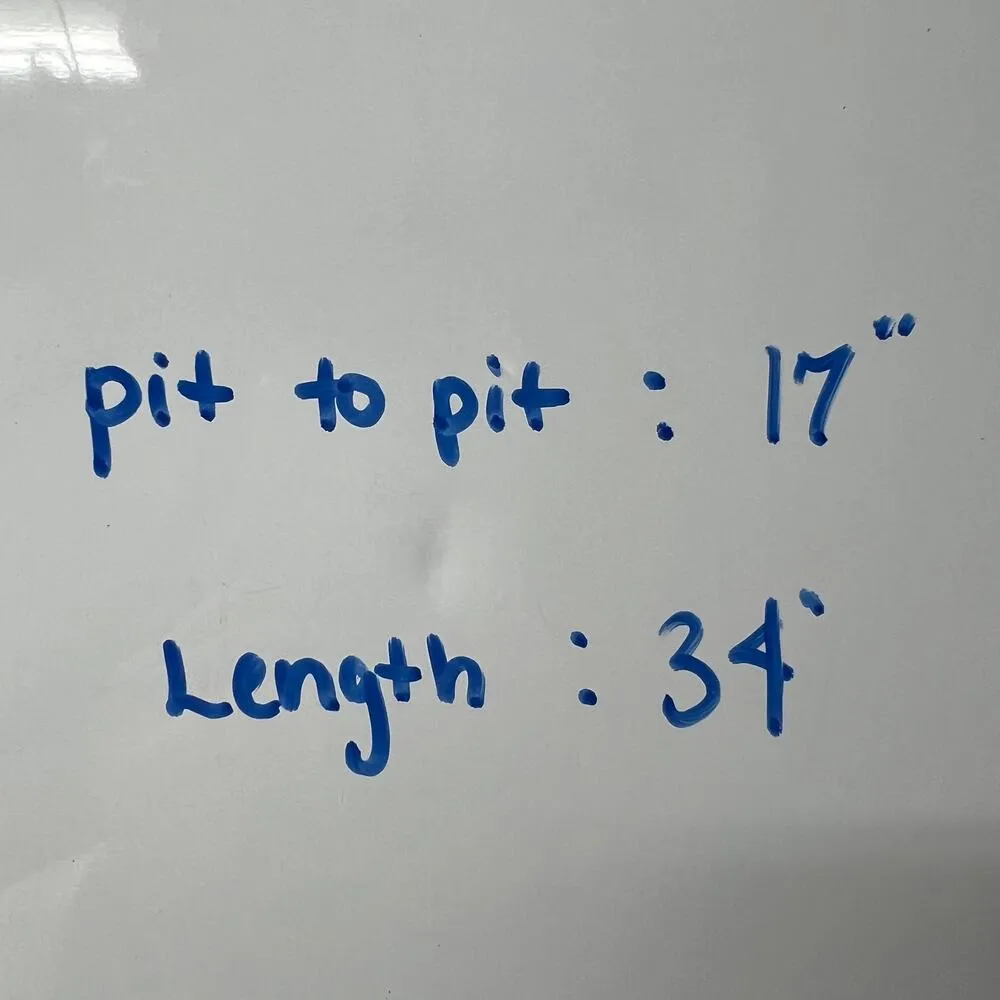 pit to pit : 17"
Length : 34'